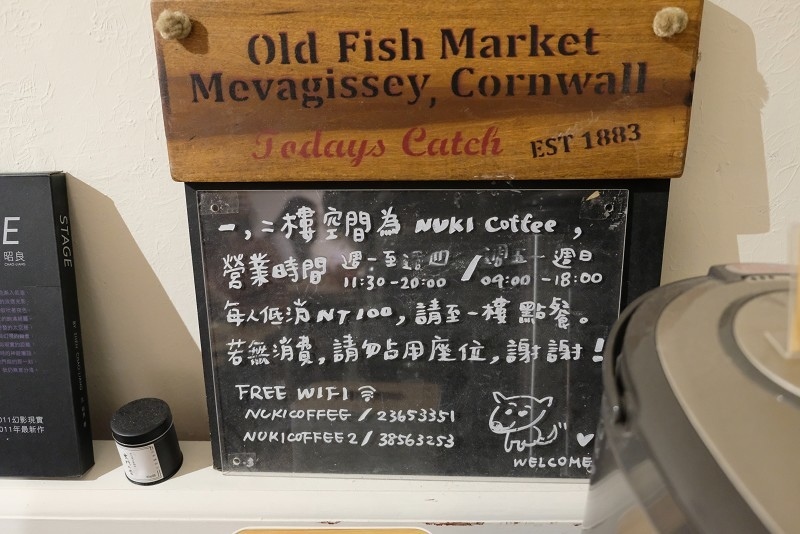 Old Fish Market
Mevagissey, Cornwall
Todays Catch EST 1883
一,二樓空間為 NUKI Coffee,
營業時間 週一至週四 / 週五-週日
11:30-20:00 09:00-18:00
每人低消NT100,請至一樓點餐。
若無消費,請勿占用座位,謝謝!
FREE WIFI
NUKICOFFEE / 23653351
NUKICOFFEE2 / 38563253
WELCOME
E
昭良
STAGE
2011年最新作